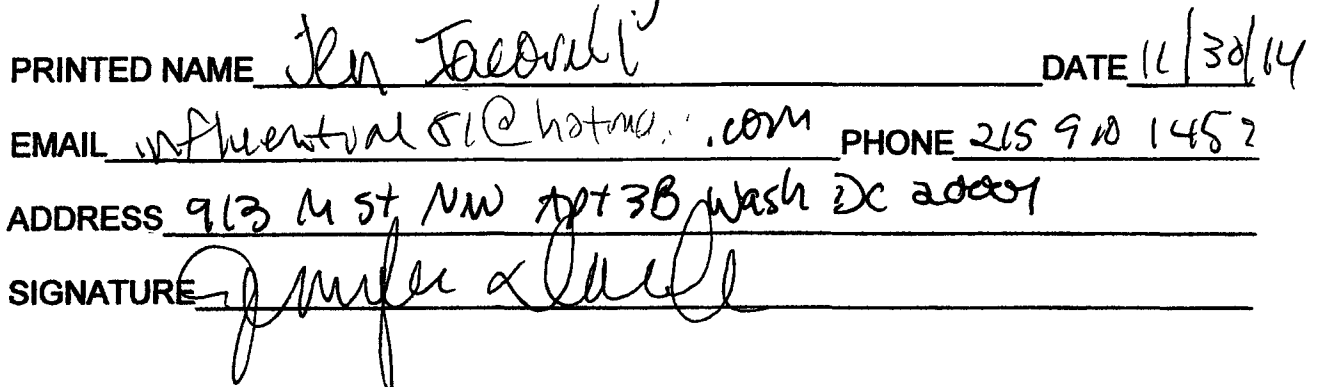 PRINTED NAME Jen Iacovelli DATE 11/30/14
EMAIL influential81@hotma. .com PHONE 215 910 1452
ADDRESS 913 M St NW Apt 3B Wash DC 20001
SIGNATURE